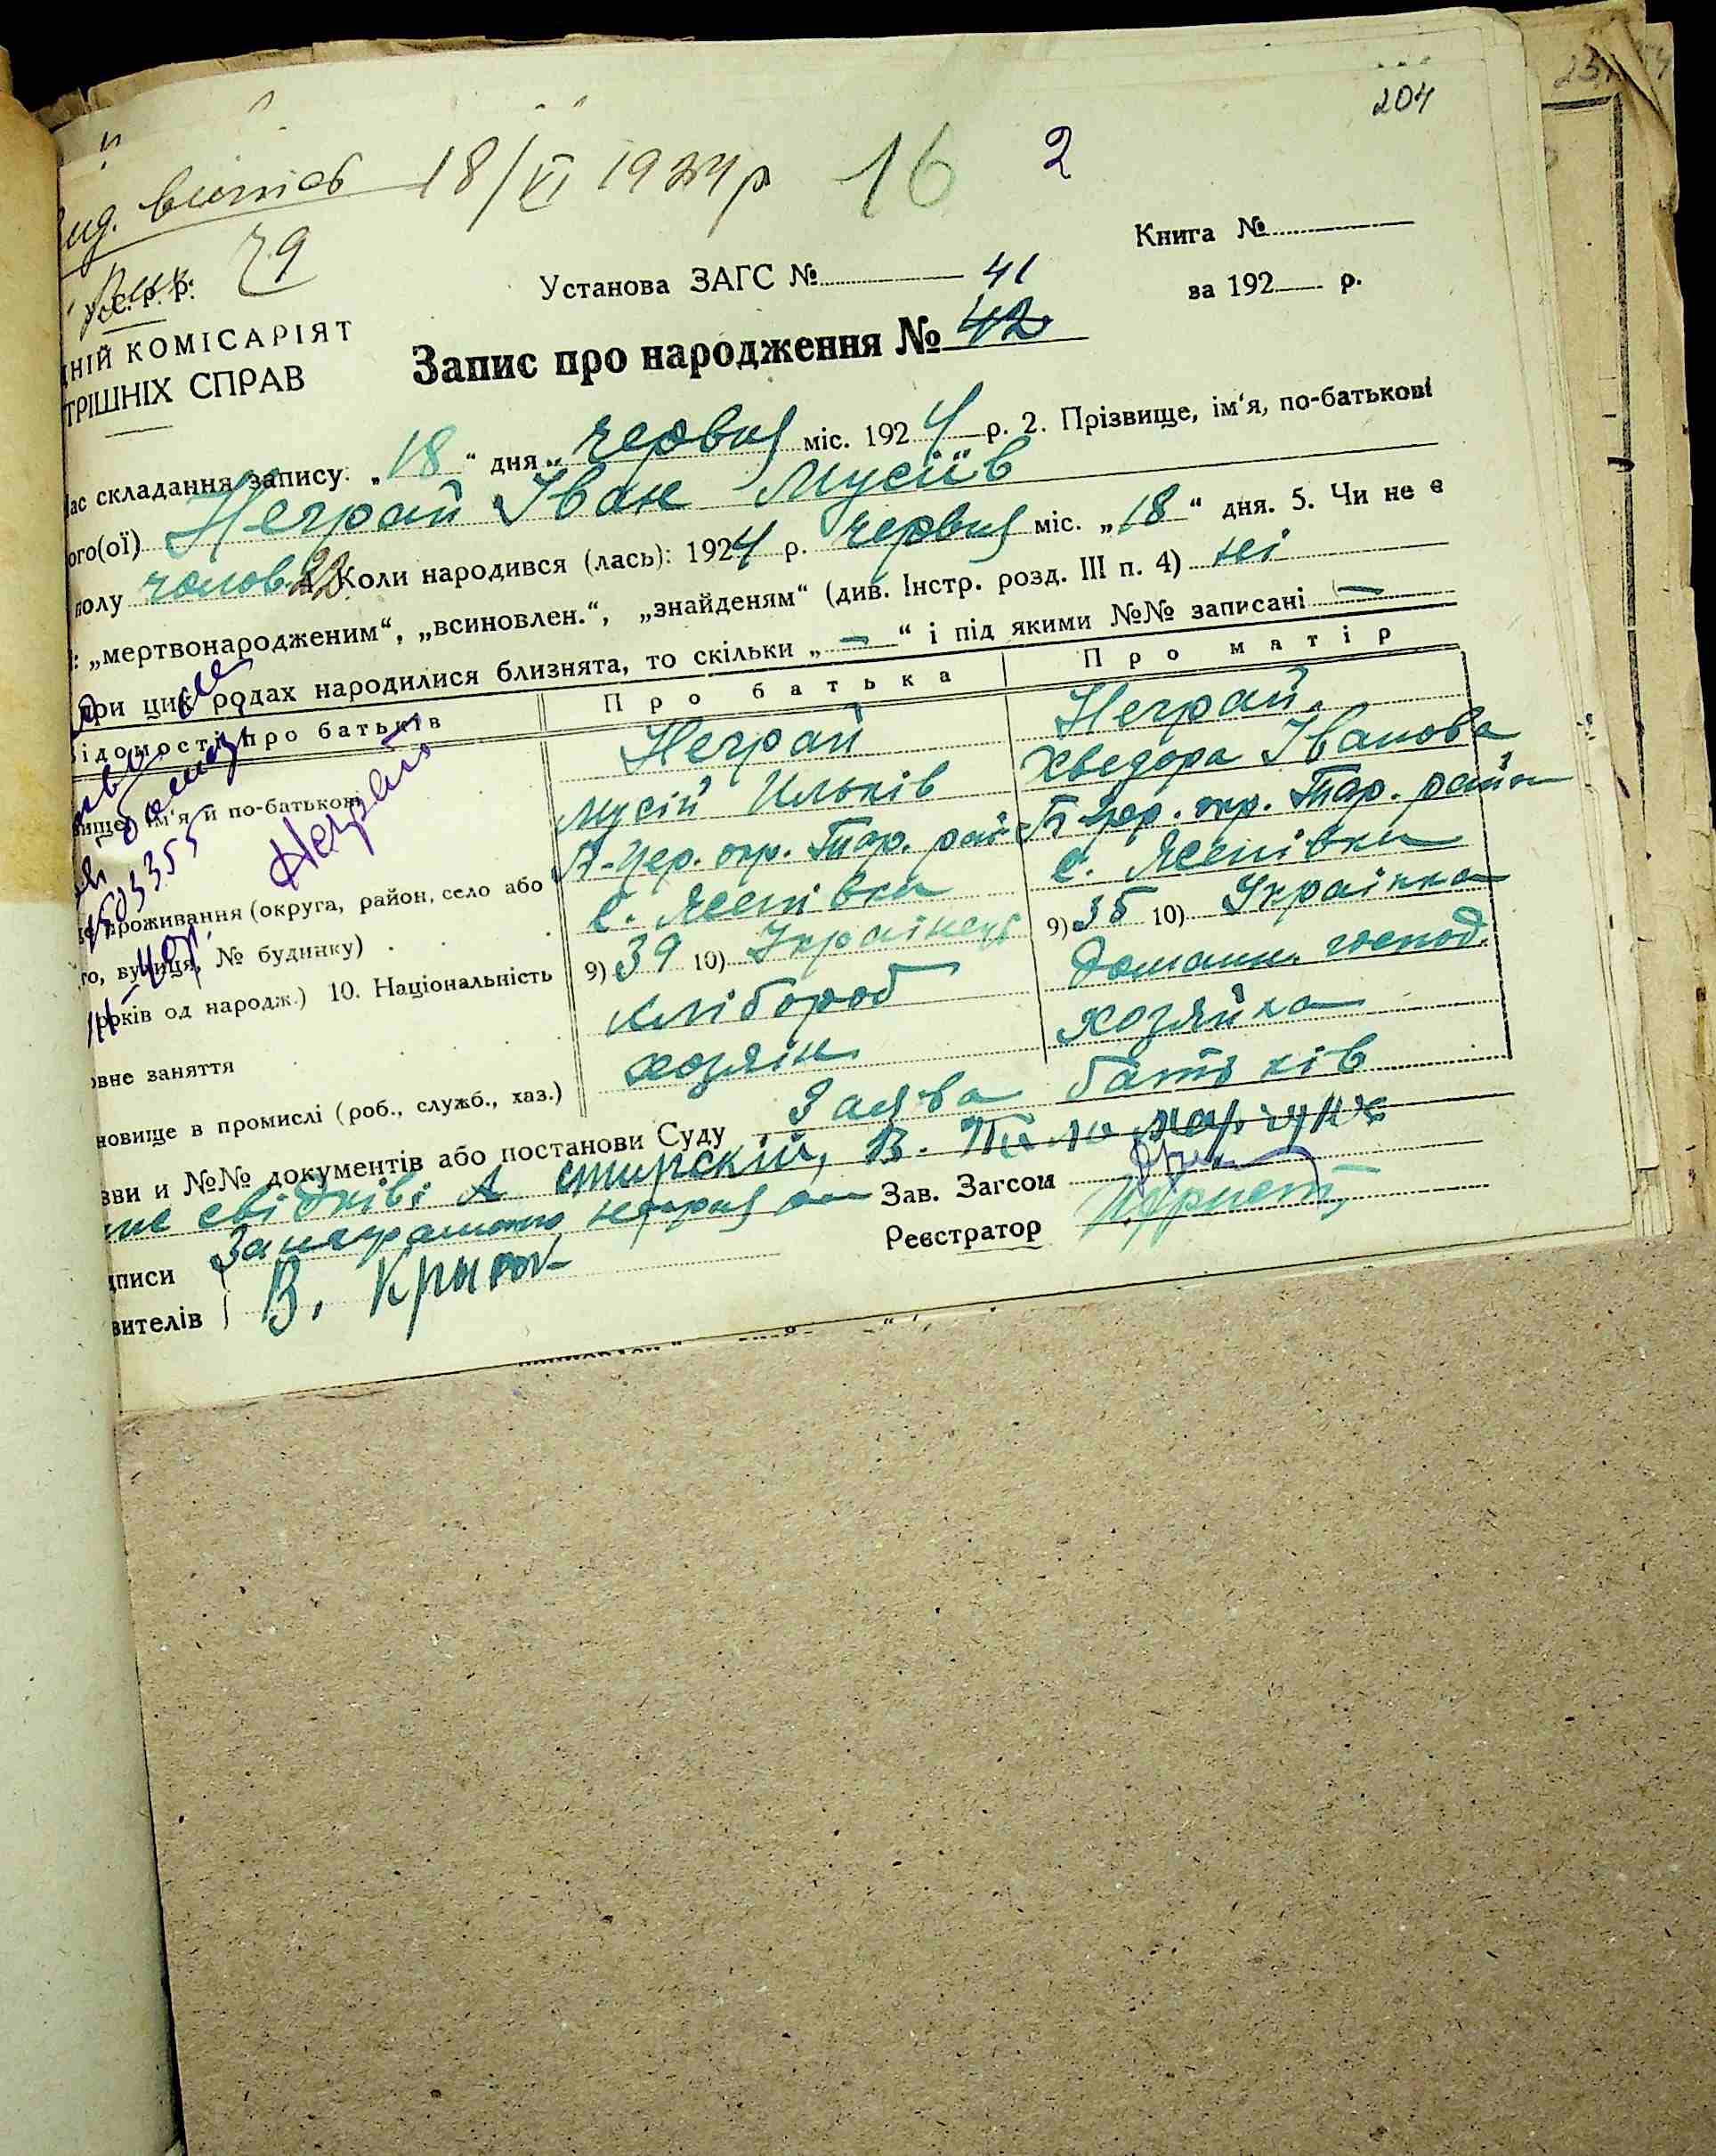 204
витяг 18/VI 1934 р 16 2
79
У.С.Р.Р.
Книга №
Установа ЗАГС № 41
за 192 р.
НІЙ КОМІСАРІЯТ
ТРІШНІХ СПРАВ
Запис про народження № 42
ас складання запису: „18“ дня „червня міс. 1924 р. 2. Прізвище, ім'я, по-батькові
ого(ої) Неграй Іван Мусіїв
полу чолов. 4. Коли народився (лась): 1924 р. червня міс. „18“ дня. 5. Чи не є
: „мертвонародженим“, „всиновлен.“, „знайденям“ (див. Інстр. розд. III п. 4) ні
при цих родах народилися близнята, то скільки „—“ і під якими №№ записані —
ідомості про батьків Про батька Про матір
Неграй Неграй
вище, ім'я й по-батькові Мусій Ильків Хведора Іванова
Неграй
Б-Цер. окр. Тар. рай Б-Цер. окр. Тар. район
проживання (округа, район, село або с. Ясенівка с. Ясенівка
го, вулиця, № будинку)
років од народж.) 10. Національність 9) 39 10) Українець 9) 35 10) Українка
овне заняття хлібороб домашн. господ.
новище в промислі (роб., служб., хаз.) хозяін хозяйка
зви и №№ документів або постанови Суду Заява батьків
свідків: А
Зав. Загсом
Реєстратор
дписи
вителів В.